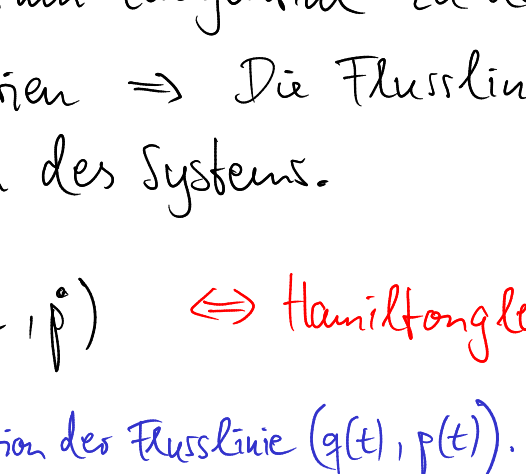 ⇒ Die Flusslin
des Systems.
, ṗ) ⇔ Hamiltongle
ion der Flusslinie (q(t), p(t)).